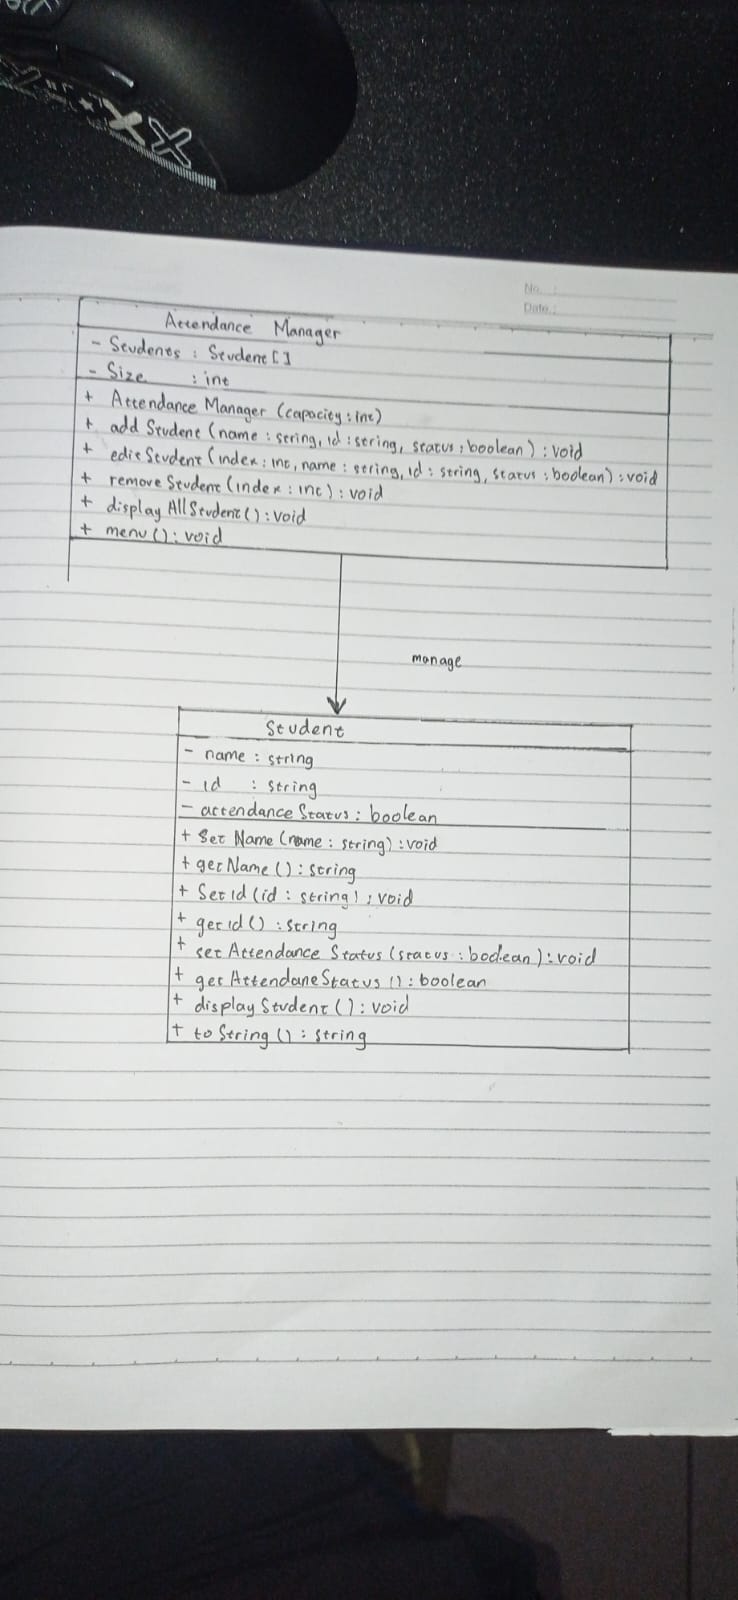 No. :
Date. :
Attendance Manager
- Students : Student []
- Size : int
+ Attendance Manager (capacity : int)
+ add Student (name : string, id : string, status : boolean) : void
+ edit Student (index : int, name : string, id : string, status : boolean) : void
+ remove Student (index : int) : void
+ display All Student () : void
+ menu () : void
manage
Student
- name : string
- id : string
- attendance Status : boolean
+ Set Name (name : string) : void
+ get Name () : string
+ Set id (id : string) : void
+ get id () : string
+ set Attendance Status (status : boolean) : void
+ get Attendane Status () : boolean
+ display Student () : void
+ to String () : string